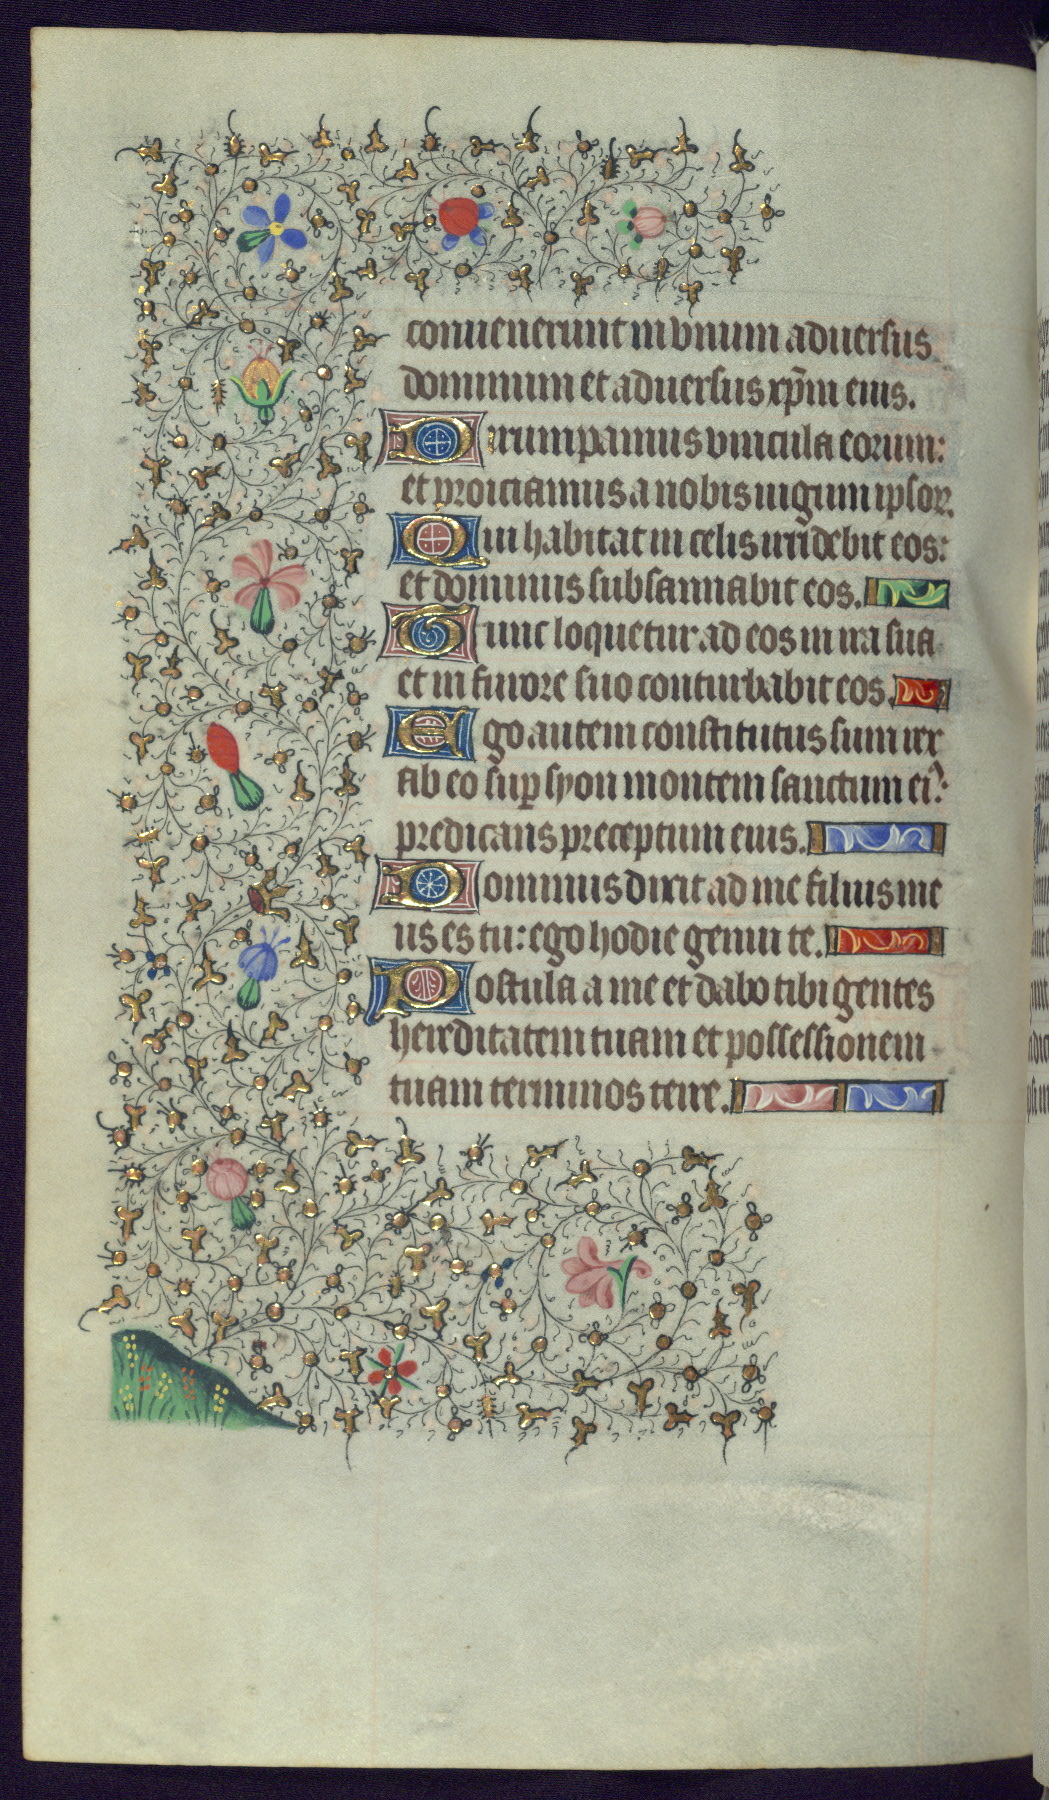 conuenerunt in vnum aduersus
dominum et aduersus xp̄m eius.
Dirumpamus vincula eorum:
et proiciamus a nobis iugum ipsoꝝ.
Qui habitat in celis irridebit eos:
et dominus subsannabit eos.
Tunc loquetur ad eos in ira sua
et in furore suo conturbabit eos.
Ego autem constitutus sum rex
ab eo suꝑ syon montem sanctum eiꝰ:
predicans preceptum eius.
Dominus dixit ad me filius me
us es tu: ego hodie genui te.
Postula a me et dabo tibi gentes
hereditatem tuam et possessionem
tuam terminos terre.